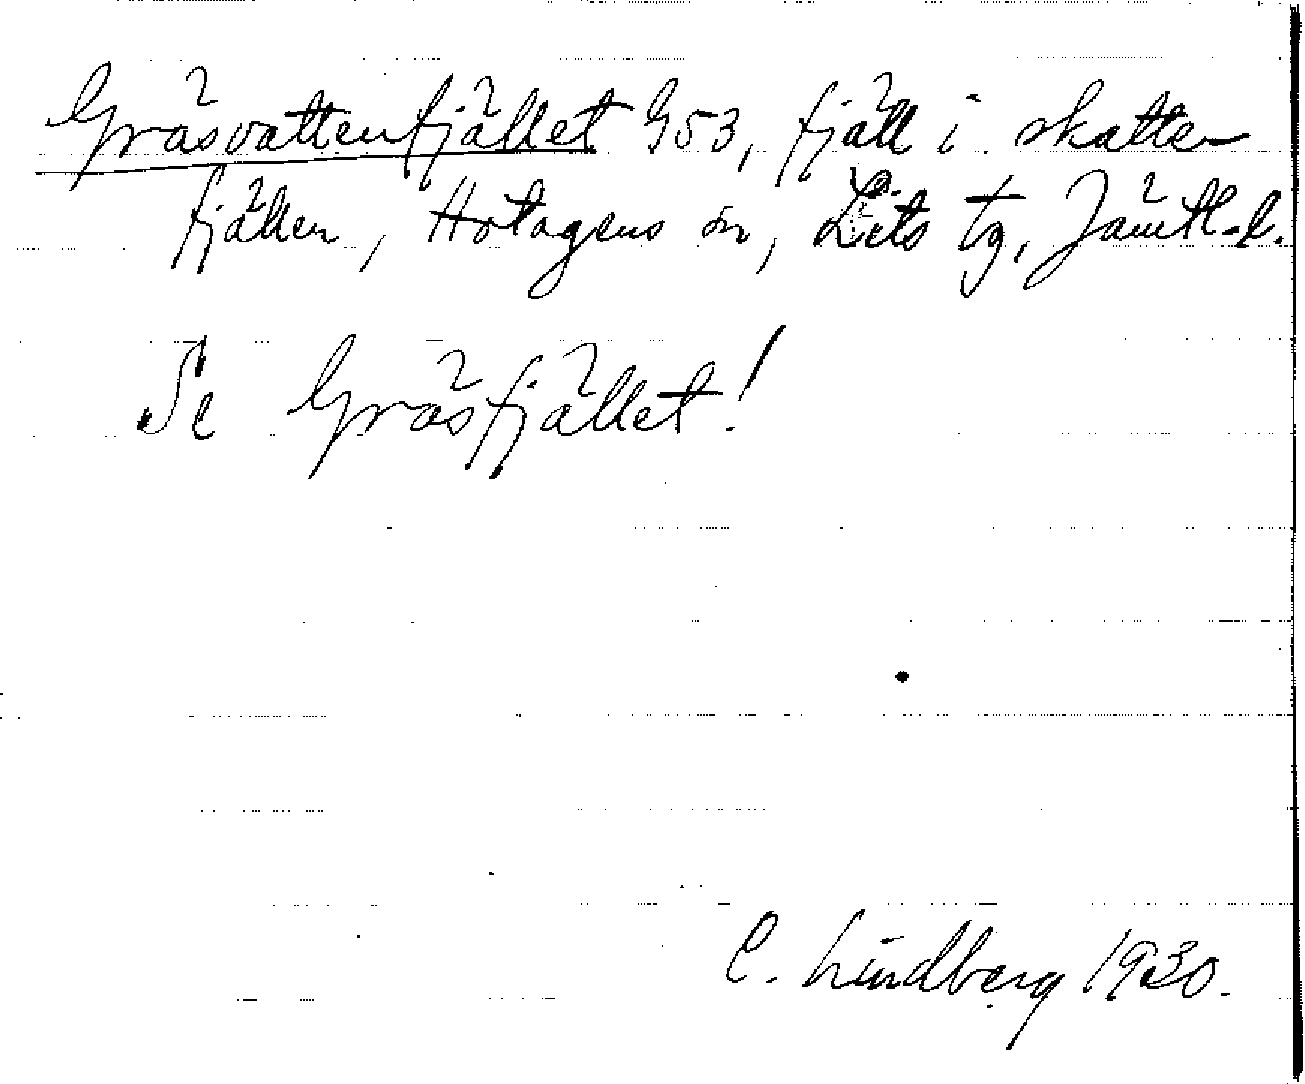 Gräsvattenfjället 953, fjäll i skatte-
fjällen, Hotagens sn, Lits tg, Jämtl. l.
Se Gräsfjället!
C. Lindberg 1930.